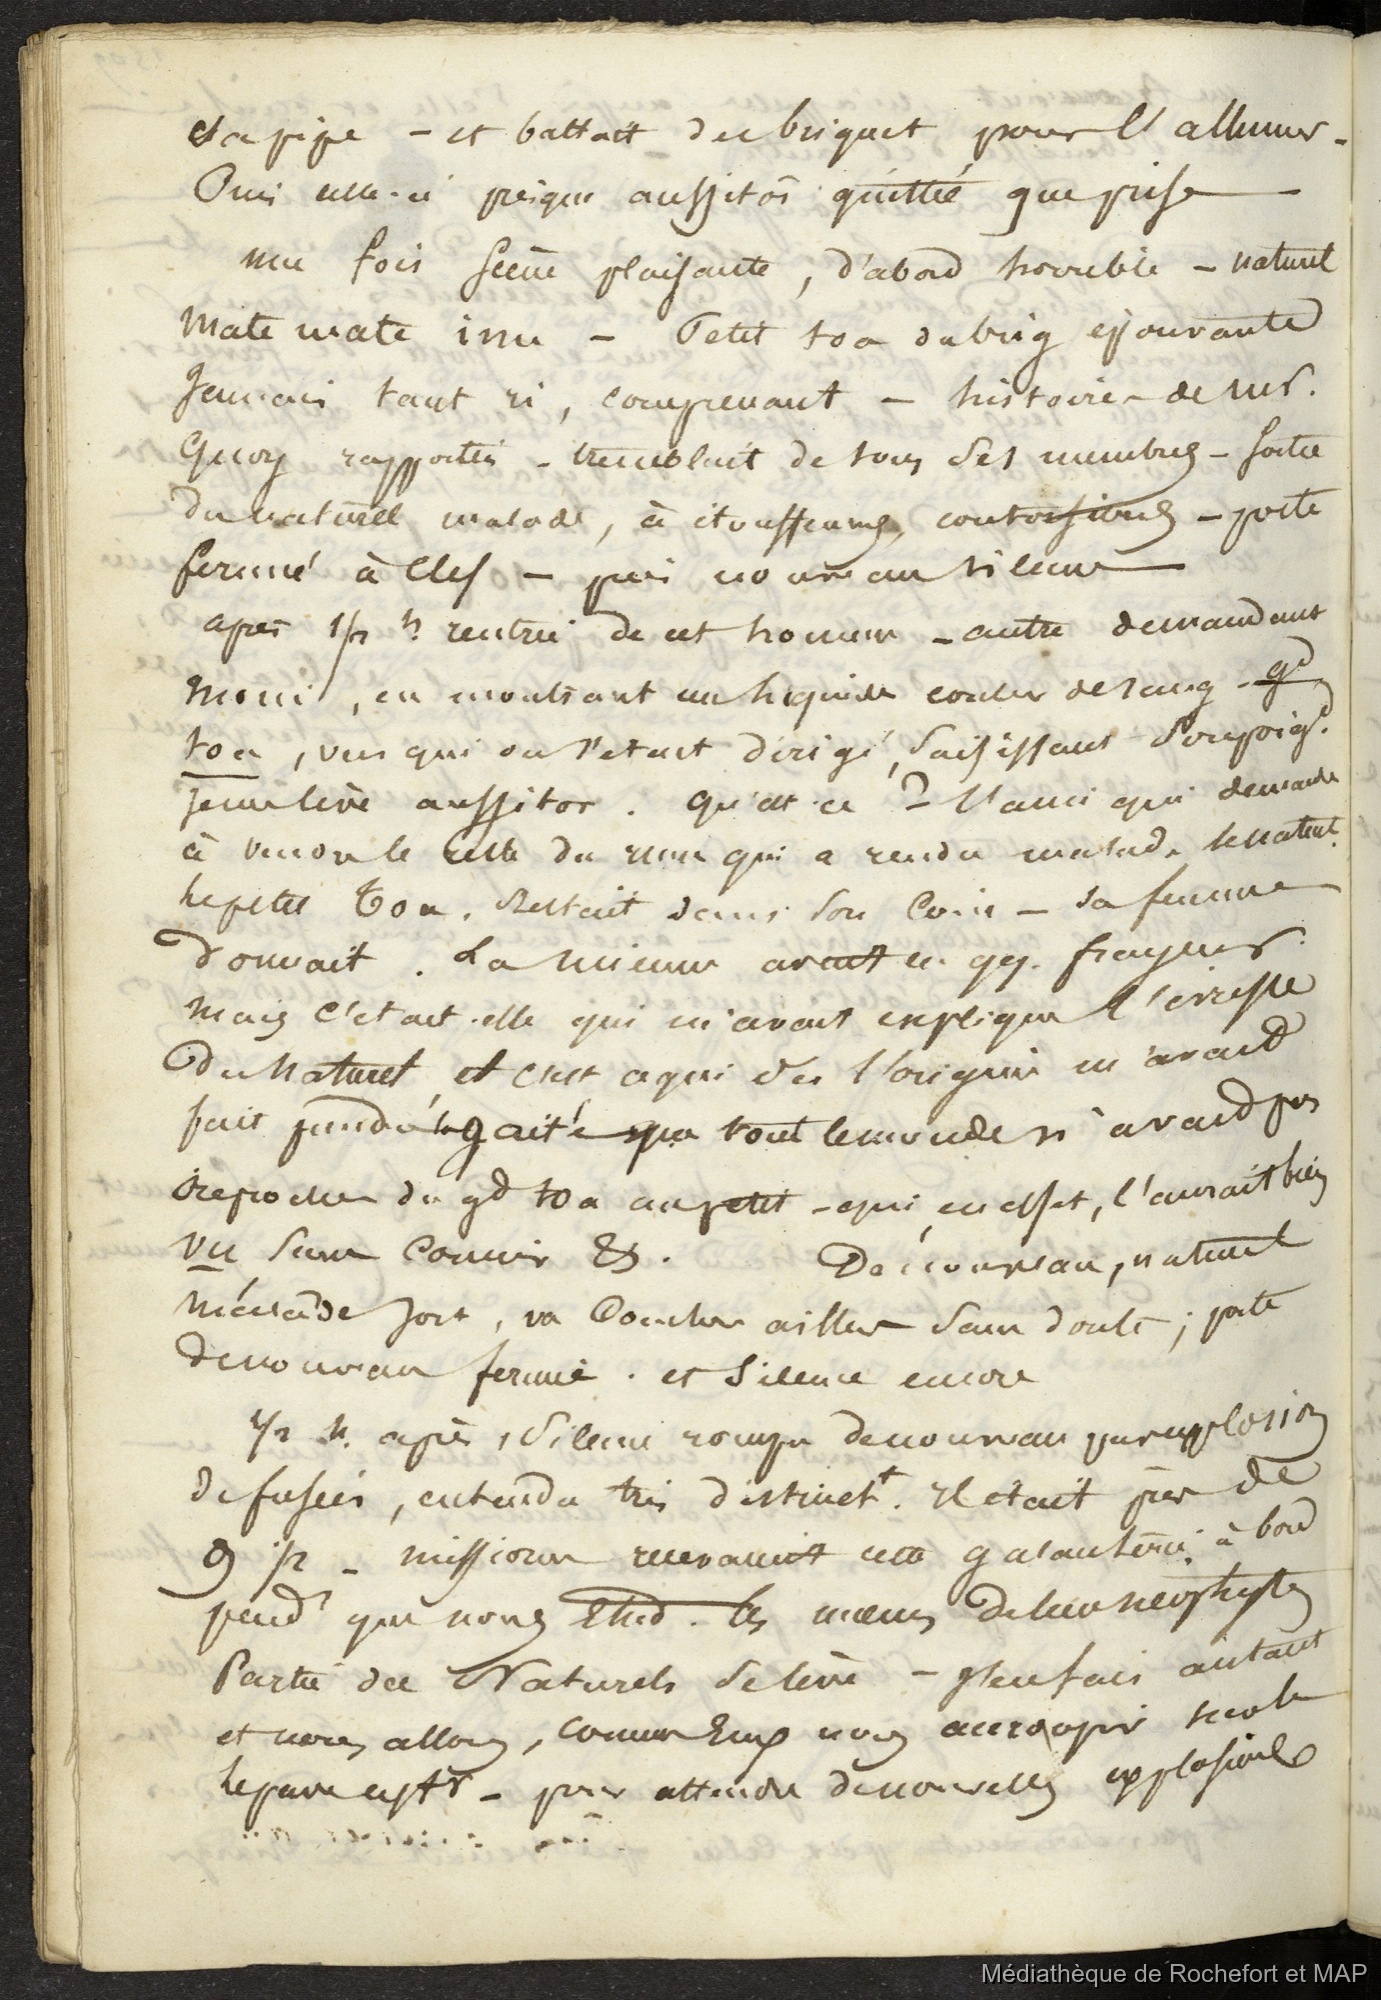 sa pipe – et battait du briquet pour l'allumer –
Puis celle-ci presque aussitôt quittée que prise –
une fois scène plaisante, d'abord horrible – naturel
mate mate inu – Petit toa du brig épouvanté
Jamais tant ri, comprenant – histoire de mr.
Quoy rapportée – tremblait de tous ses membres – sortie
du naturel malade, à étouffemens, contorsions – porte
fermée à clef – puis nouveau silence –
après 1/2 h. rentrée de cet homme – autre demandant
moni, en montrant un liquide couler de sang – gd
toa, vers qui on s'était dirigé, saisissant son poigd.
je me lève aussitôt. qu'est-ce ? – l'ami qui demande
à vendre le reste du rum qui a rendu malade le naturel.
le petit toa. Restait dans son coin – sa femme
dormait. La mienne avait eu qq. frayeur.
mais c'était elle qui m'avait expliqué l'ivresse
du naturel, et c'est ce qui dès l'origine m'avait
fait prendre la gaité que tout le monde n'avait pas
Reproches du gd toa au petit – qui, en effet, l'aurait bien
vu sans courir &. De nouveau, naturel
malade sort, va coucher ailleurs sans doute ; porte
de nouveau fermée. et silence encore
1/2 h. après, silence rompu de nouveau par explosion
de fusées, entendu très distinctt. Il était près de
9 1/2 – missionn recevaient cette galanterie à bord
pendt que nous les mœurs de leurs néophytes
Partie des Naturels se lève – j'en fais autant
et nous allons, comme Eux nous accroupir sur le
le pavé extr – pour attendre de nouvelles explosions